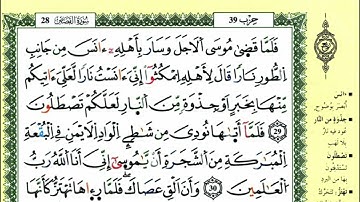 28 سُورَةُ القَصَصِ
حِزْب 39
فَلَمَّا قَضَىٰ مُوسَى ٱلْأَجَلَ وَسَارَ بِأَهْلِهِۦٓ ءَانَسَ مِن جَانِبِ
ٱلطُّورِ نَارًا قَالَ لِأَهْلِهِ ٱمْكُثُوٓا۟ إِنِّىٓ ءَانَسْتُ نَارًا لَّعَلِّىٓ ءَاتِيكُم
مِّنْهَا بِخَبَرٍ أَوْ جَذْوَةٍ مِّنَ ٱلنَّارِ لَعَلَّكُمْ تَصْطَلُونَ
29 فَلَمَّآ أَتَىٰهَا نُودِىَ مِن شَٰطِئِ ٱلْوَادِ ٱلْأَيْمَنِ فِى ٱلْبُقْعَةِ
ٱلْمُبَٰرَكَةِ مِنَ ٱلشَّجَرَةِ أَن يَٰمُوسَىٰٓ إِنِّىٓ أَنَا ٱللَّهُ رَبُّ
ٱلْعَٰلَمِينَ 30 وَأَنْ أَلْقِ عَصَاكَ فَلَمَّا رَءَاهَا تَهْتَزُّ كَأَنَّهَا
• ءَانَسَ
• جَذْوَةٍ مِّنَ النَّارِ
• تَصْطَلُونَ